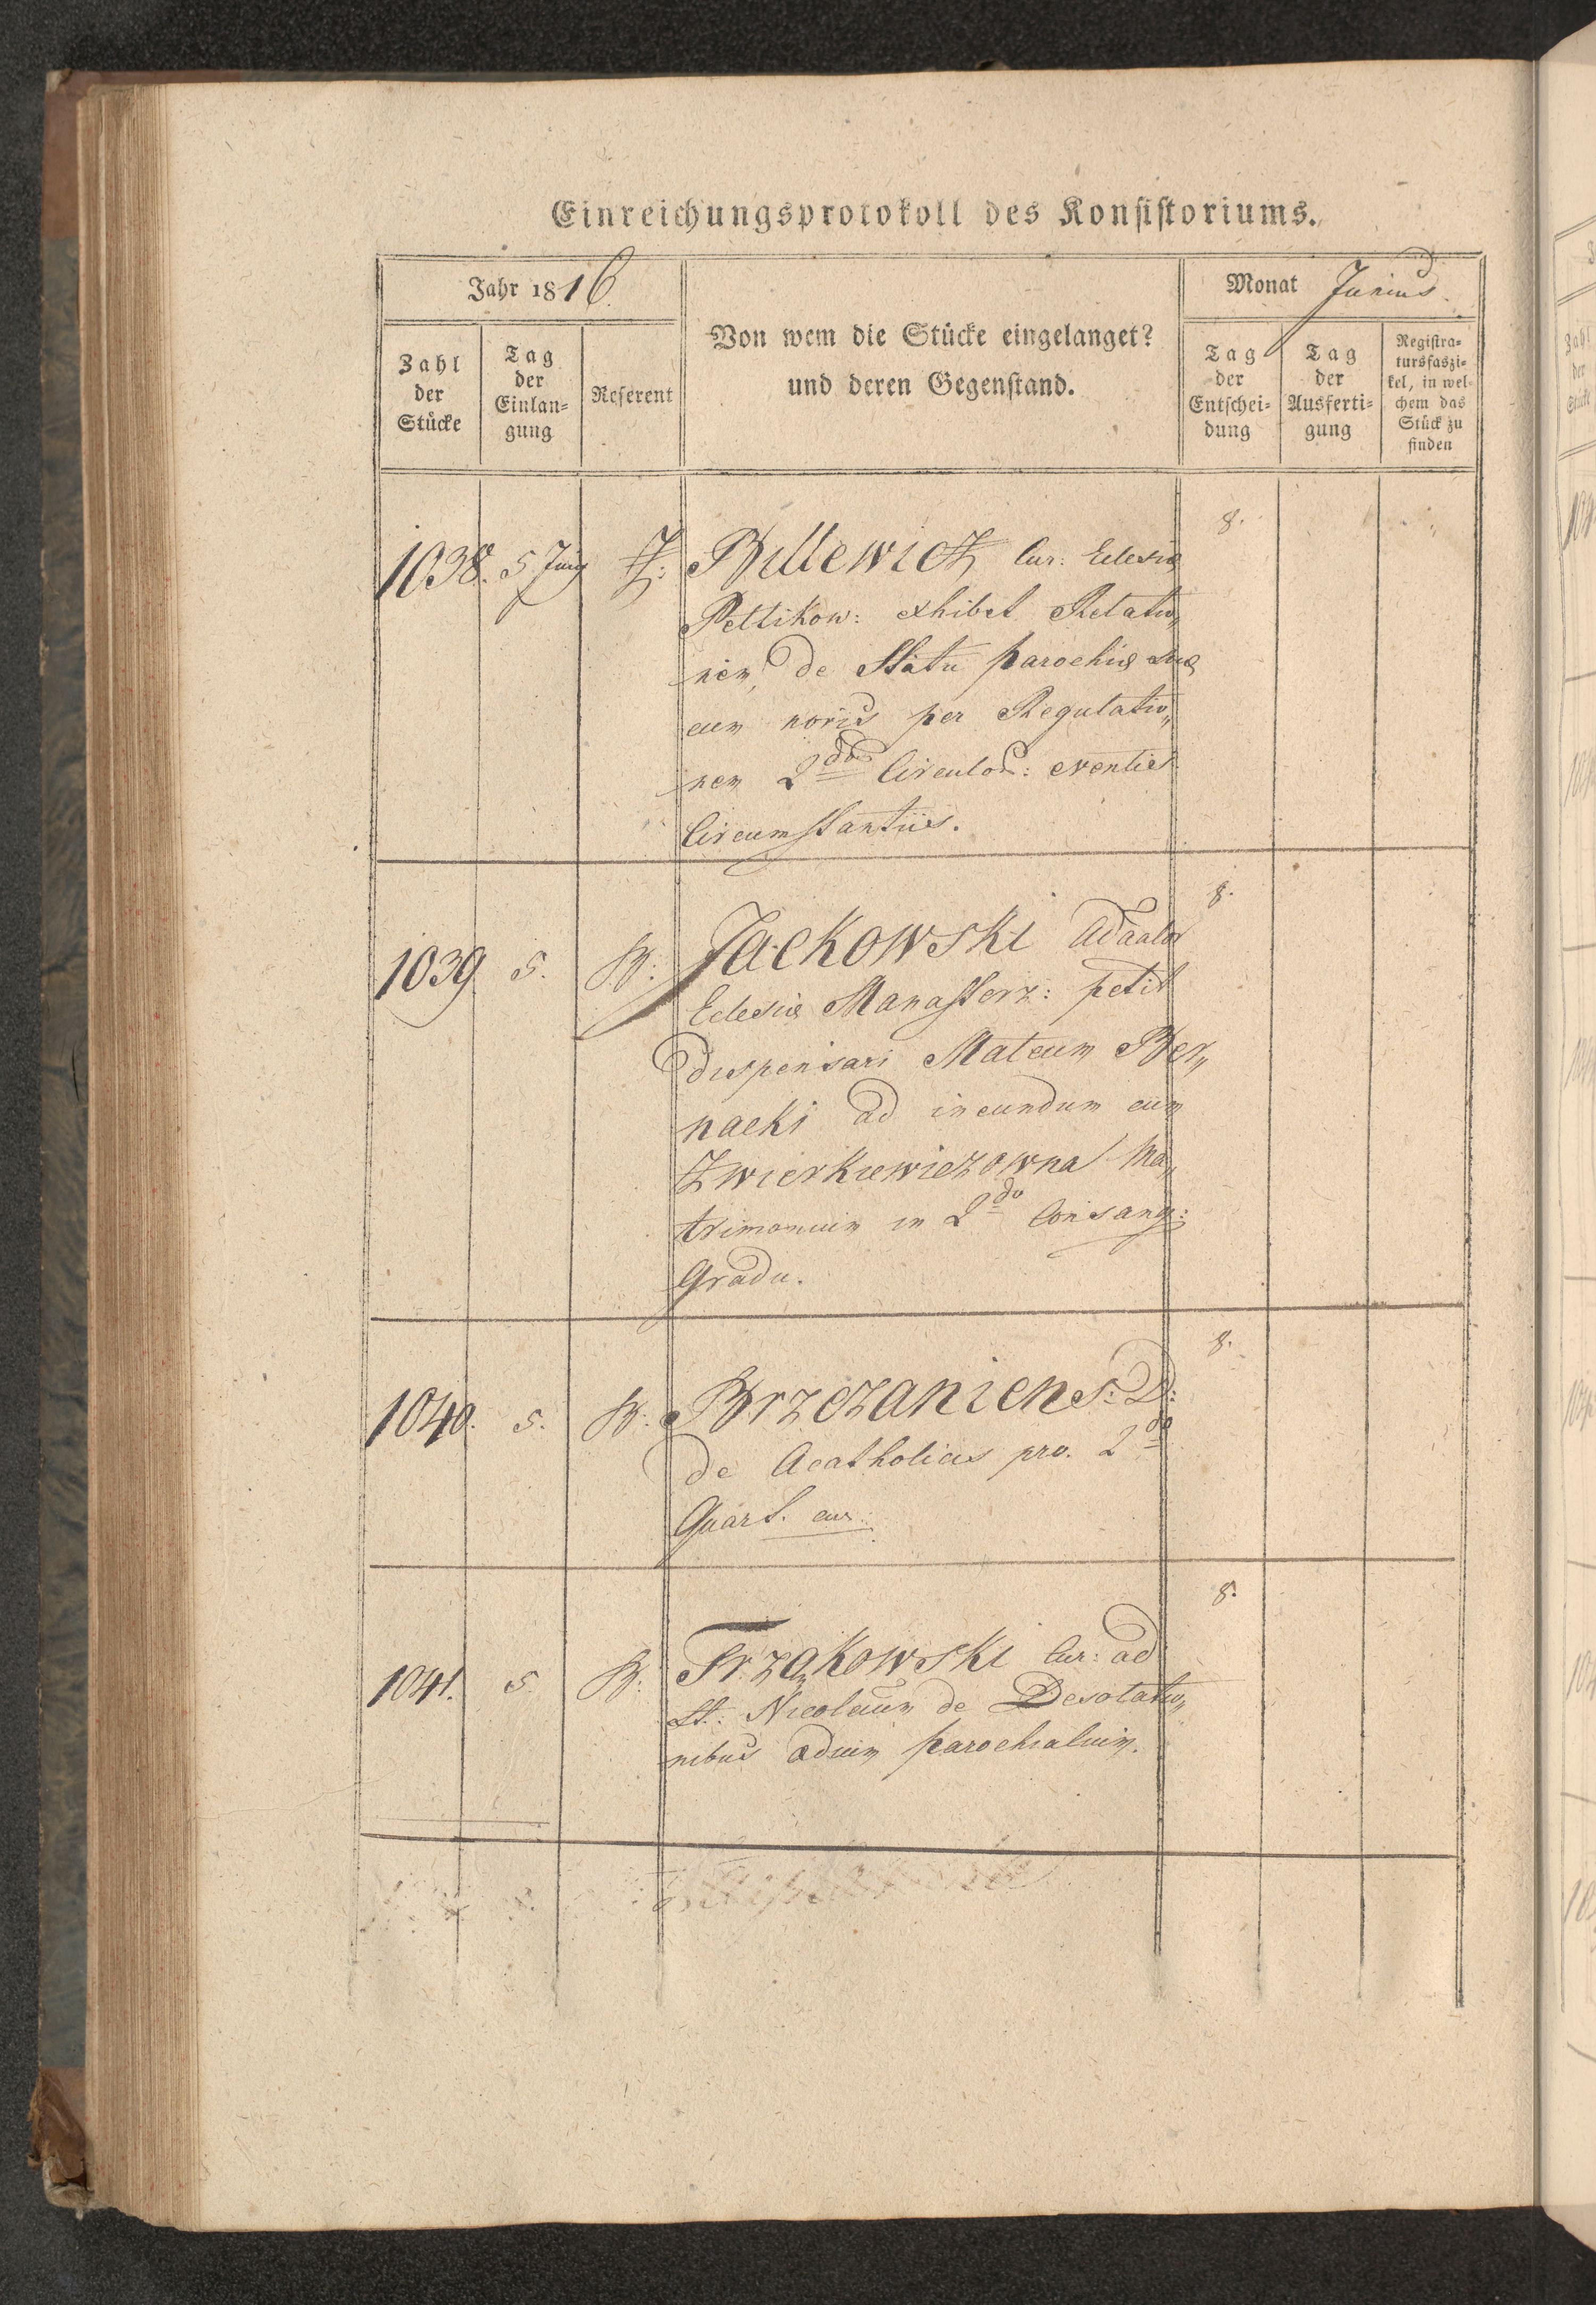 Einreichungsprotokoll des Konsistoriums.
Jahr 1816.
Von wem die Stücke eingelanget?
und deren Gegenstand.
Monat Junius.
Zahl
der
Stücke
Tag
der
Einlan=
gung
Referent
Tag
der
Entschei=
dung
Tag
der
Ausferti=
gung
Registra=
tursfaszi=
kel, in wel=
chem das
Stück zu
finden
1038. 5 Junÿ Z: Billewicz Cur: Eclesiæ 8.
Pettikow: exhibet Relatio„
nem de Statu parochiæ suæ
cum noviis per Regulatio„
nem 2do Circulor: eventis
Circumstantiis.
1039. 5. B: Jackowski Adaalor 8.
Eclesiæ Manasterz: petit
dispensari Mateum Ber„
nacki ad ineundum cum
Zwierkiewiczowna Ma„
trimonium in 2do Consang:
Gradu.
1040. 5. B: Brzezaniens: D: 8.
de Acatholicis pro. 2do
Quart. cur:
1041. 5. B: Trząkowski Cur: ad 8.
St: Nicolaum de Desolatio„
nibus ædium parochialium.